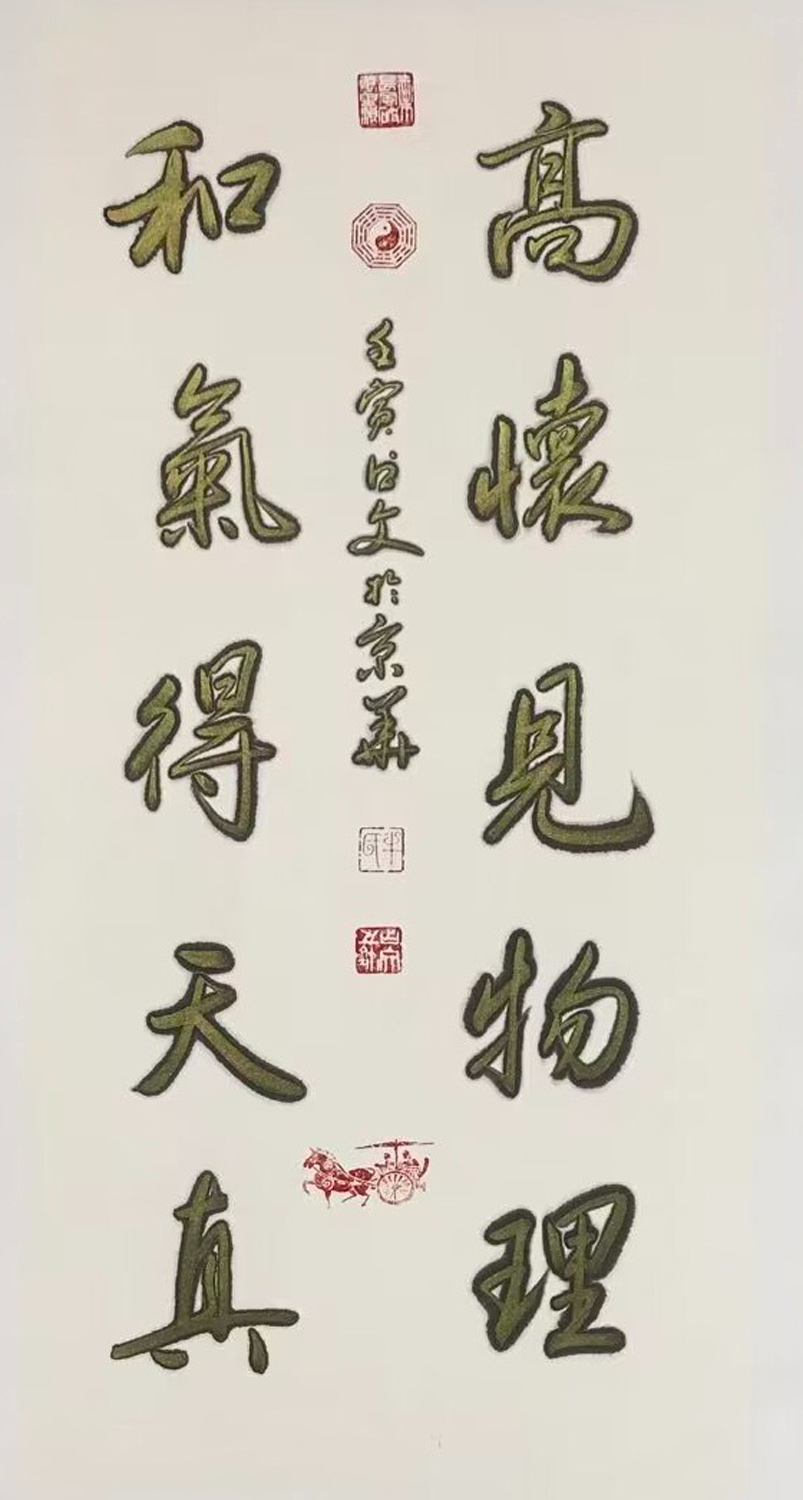 高懷見物理
和氣得天真
壬寅 文於京華